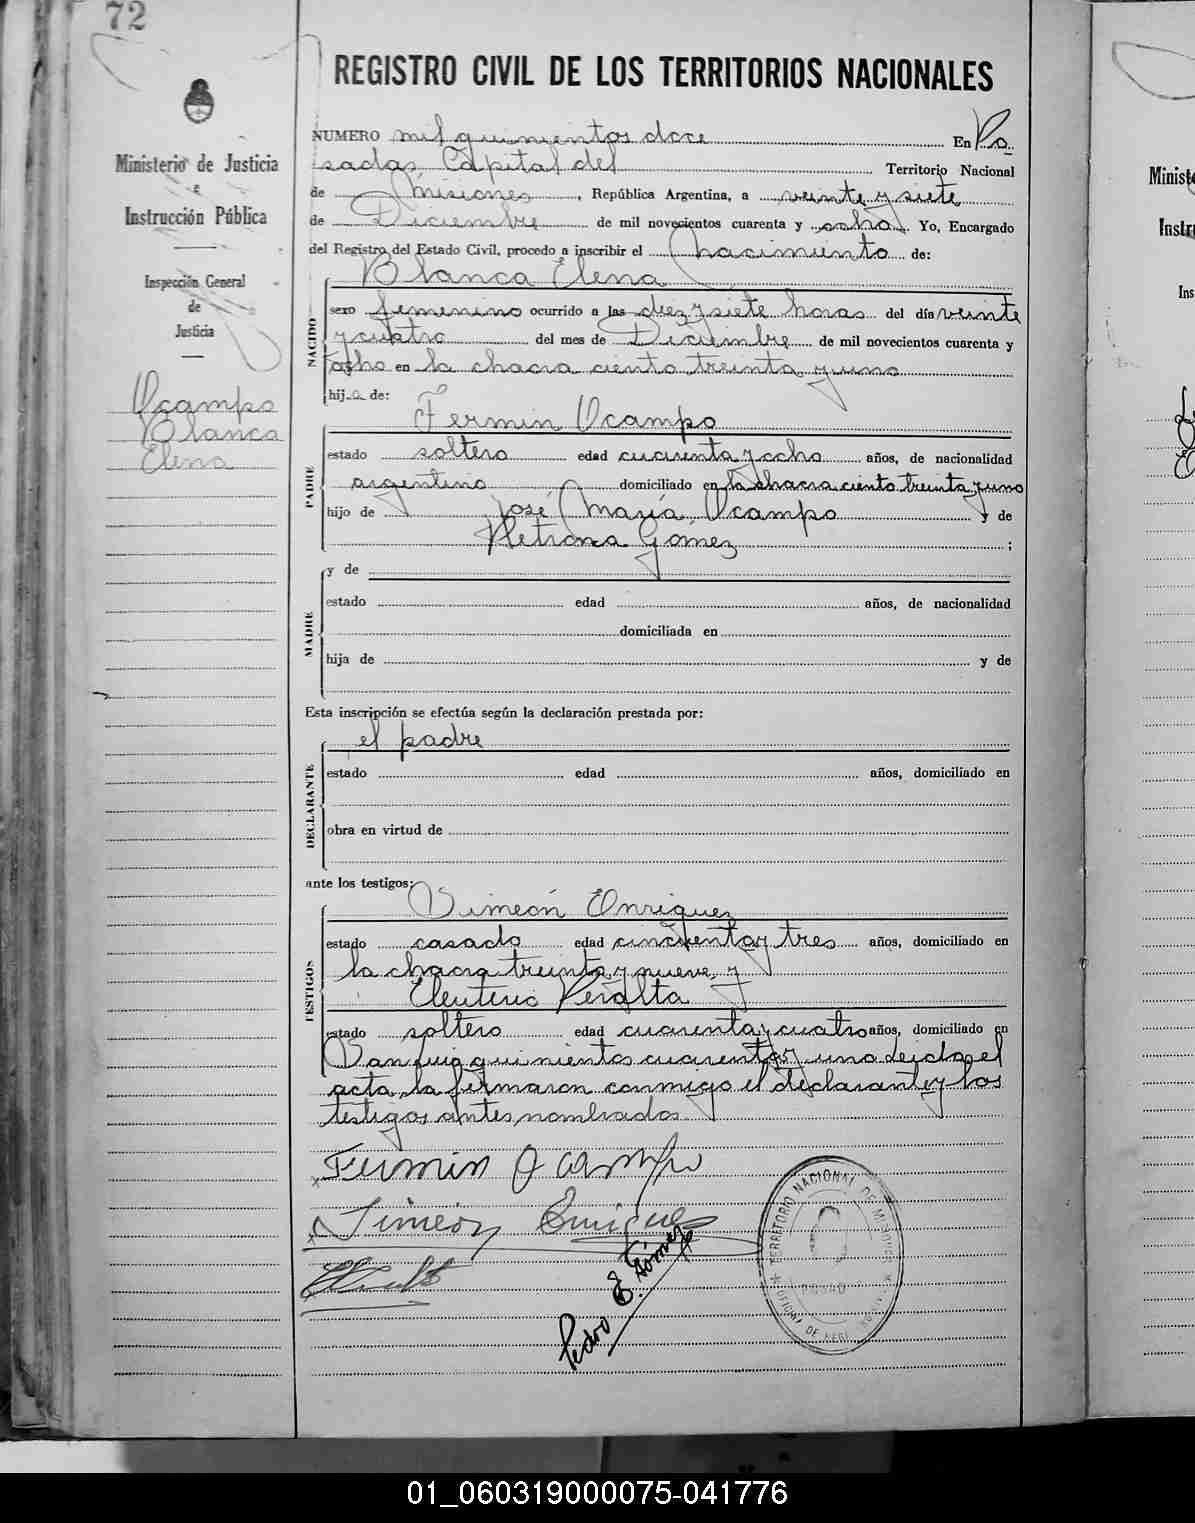 72
REGISTRO CIVIL DE LOS TERRITORIOS NACIONALES
Ministerio de Justicia
e
Instrucción Pública
Inspección General
de
Justicia
Ocampo
Blanca
Elena
NUMERO mil quinientos doce En Po
sadas, Capital del Territorio Nacional
de Misiones, República Argentina, a veinte y siete
de Diciembre de mil novecientos cuarenta y ocho. Yo, Encargado
del Registro del Estado Civil, procedo a inscribir el nacimiento de:
Blanca Elena
NACIDO
sexo femenino ocurrido a las diez y siete horas del día veinte
y cuatro del mes de Diciembre de mil novecientos cuarenta y
ocho en la chacra ciento treinta y uno
hija de:
Fermin Ocampo
PADRE
estado soltero edad cuarenta y ocho años, de nacionalidad
argentino domiciliado en la chacra ciento treinta y uno
hijo de José María Ocampo y de
Petrona Gomez ;
MADRE
y de
estado edad años, de nacionalidad
domiciliada en
hija de y de
Esta inscripción se efectúa según la declaración prestada por:
el padre
DECLARANTE
estado edad años, domiciliado en
obra en virtud de
ante los testigos:
Simeón Enriquez
TESTIGOS
estado casado edad cincuenta y tres años, domiciliado en
la chacra treinta y nueve, y
Eleuterio Peralta
estado soltero edad cuarenta y cuatro años, domiciliado en
San Luis quinientos cuarenta y uno. Leida el
acta, la firmaron conmigo el declarante y los
testigos antes nombrados.
Fermin Ocampo
Simeón Enriquez
Pedro E. Gómez
TERRITORIO NACIONAL DE MISIONES
OFICINA DE
01_060319000075-041776
Minist
Instr
Ins